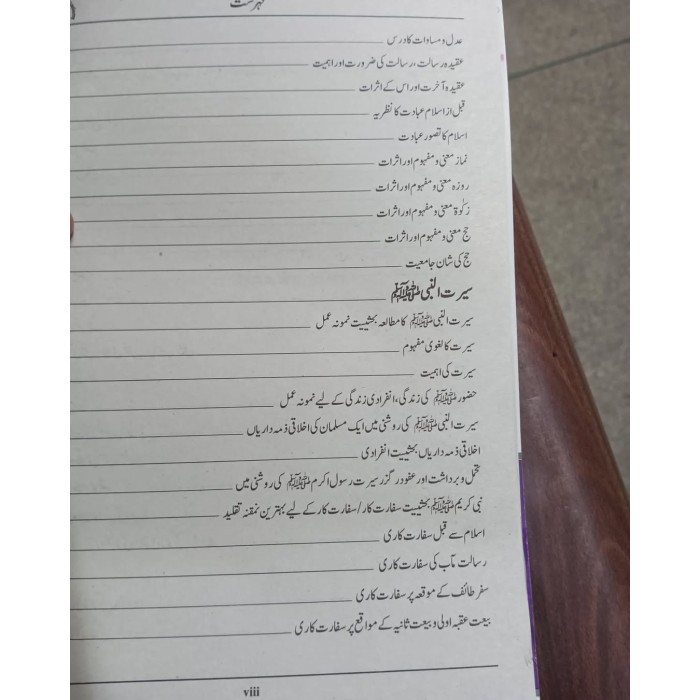 فہرست
عدل و مساوات کا درس
عقیدہ رسالت، رسالت کی ضرورت اور اہمیت
عقیدہ آخرت اور اس کے اثرات
قبل از اسلام عبادت کا نظریہ
اسلام کا تصور عبادت
نماز معنی و مفہوم اور اثرات
روزہ معنی و مفہوم اور اثرات
زکوٰۃ معنی و مفہوم اور اثرات
حج معنی و مفہوم اور اثرات
حج کی شان جامعیت
سیرت النبی ﷺ
سیرت النبی ﷺ کا مطالعہ بحیثیت نمونہ عمل
سیرت کا لغوی مفہوم
سیرت کی اہمیت
حضور ﷺ کی زندگی، انفرادی زندگی کے لیے نمونہ عمل
سیرت النبی ﷺ کی روشنی میں ایک مسلمان کی اخلاقی ذمہ داریاں
اخلاقی ذمہ داریاں بحیثیت انفرادی
تحمل و برداشت اور عفو درگزر سیرت رسول اکرم ﷺ کی روشنی میں
نبی کریم ﷺ بحیثیت سفارت کار / سفارت کار کے لیے بہترین تقلید
اسلام سے قبل سفارت کاری
رسالت مآب کی سفارت کاری
سفر طائف کے موقعہ پر سفارت کاری
بیعت عقبہ اولی و بیعت ثانیہ کے مواقع پر سفارت کاری
viii